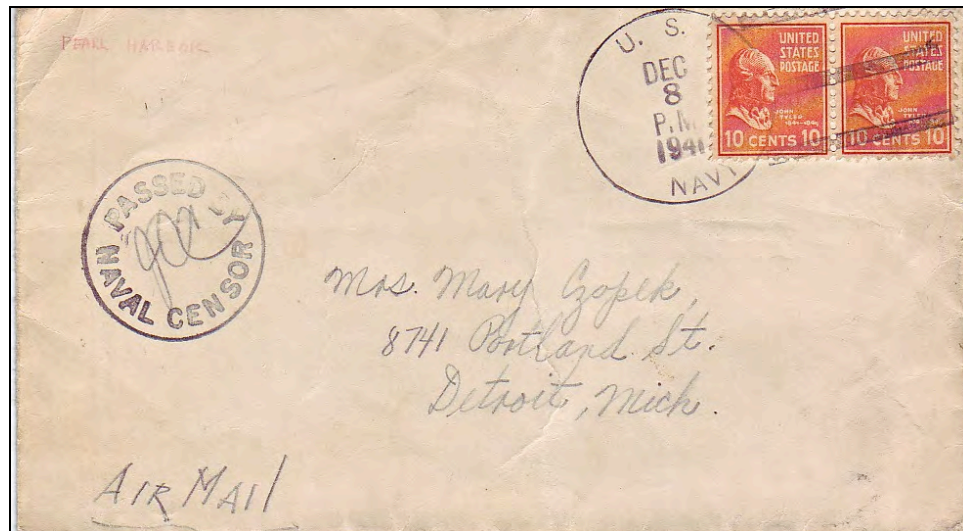 PEARL HARBOR
U. S.
DEC
8
P.M.
1941
NAVY
UNITED
STATES
POSTAGE
JOHN
TYLER
1841-1845
10 CENTS 10
UNITED
STATES
POSTAGE
JOHN
TYLER
10 CENTS 10
PASSED BY
NAVAL CENSOR
Mrs. Mary Czopek,
8741 Portland St.
Detroit, Mich.
AIR MAIL